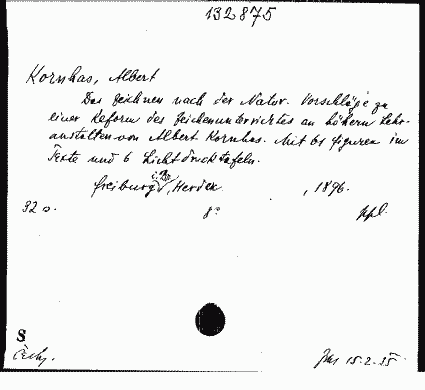 132875
Kornhas, Albert
Das Zeichnen nach der Natur. Vorschläge zu
einer Reform des Zeichenunterrichtes an höhern Lehr-
anstalten von Albert Kornhas. Mit 61 Figuren im
Texte und 6 Lichtdrucktafeln.
Freiburg i. Br., Herder, 1896.
32 s. 8° ppl.
S
15.2.35